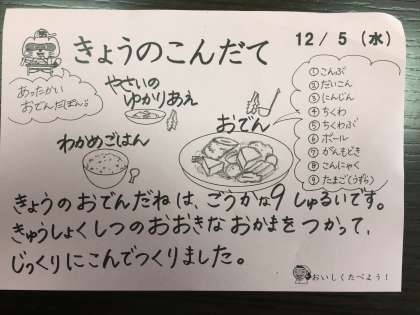 きょうのこんだて
12/5(水)
あったかい
おでんだぽん♪
やさいの
ゆかりあえ
わかめごはん
おでん
①こんぶ
②だいこん
③にんじん
④ちくわ
⑤ちくわぶ
⑥ボール
⑦がんもどき
⑧こんにゃく
⑨たまご(うずら)
きょうのおでんだねは、ごうかな9しゅるいです。
きゅうしょくしつのおおきなおかまをつかって、
じっくりにこんでつくりました。
おいしくたべよう!